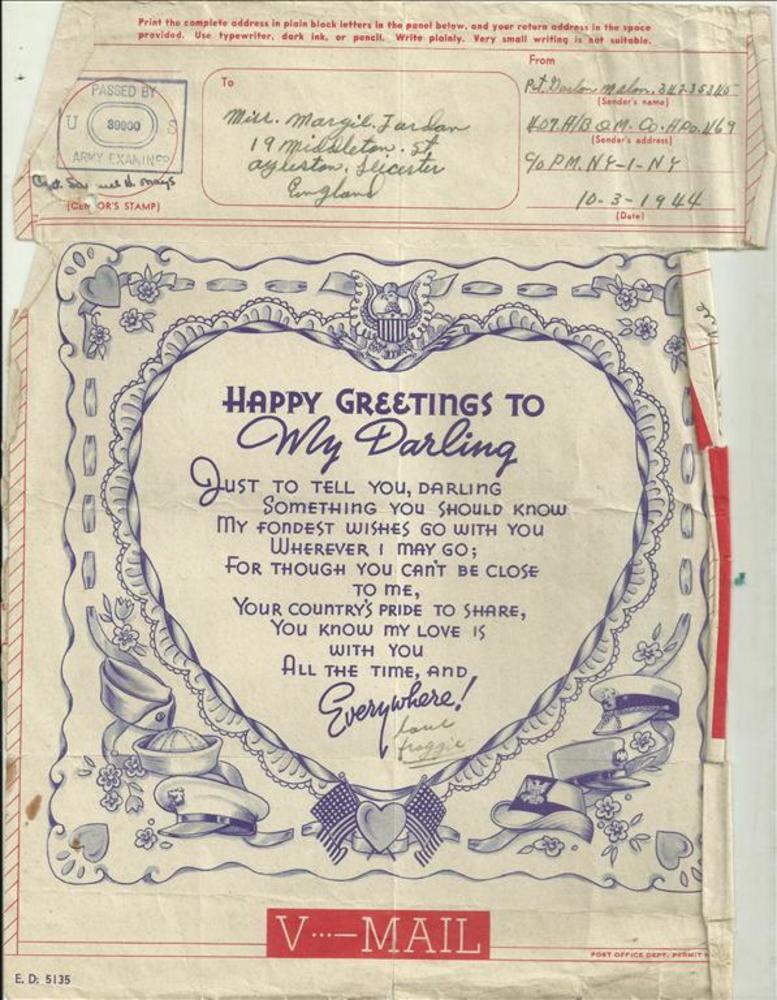 Print the complete address in plain block letters in the panel below, and your return address in the space
provided. Use typewriter, dark ink, or pencil. Write plainly. Very small writing is not suitable.
PASSED BY
U 39000 S
ARMY EXAMINER
(CEN OR'S STAMP)
To
Miss. Margie. Jordan
19 middleton. St,
England
From
Pvt.
(Sender's name)
407. A/B Q.M. Co. APO. 469
(Sender's address)
c/o P.M. N.Y-1-N.Y
10-3-1944
(Date)
HAPPY GREETINGS TO
My Darling
JUST TO TELL YOU, DARLING
SOMETHING YOU SHOULD KNOW
MY FONDEST WISHES GO WITH YOU
WHEREVER I MAY GO;
FOR THOUGH YOU CAN'T BE CLOSE
TO ME,
YOUR COUNTRY'S PRIDE TO SHARE,
YOU KNOW MY LOVE IS
WITH YOU
ALL THE TIME, AND
Everywhere!
love
froggie
V···—MAIL
POST OFFICE DEPT. PERMIT
E. D. 5135